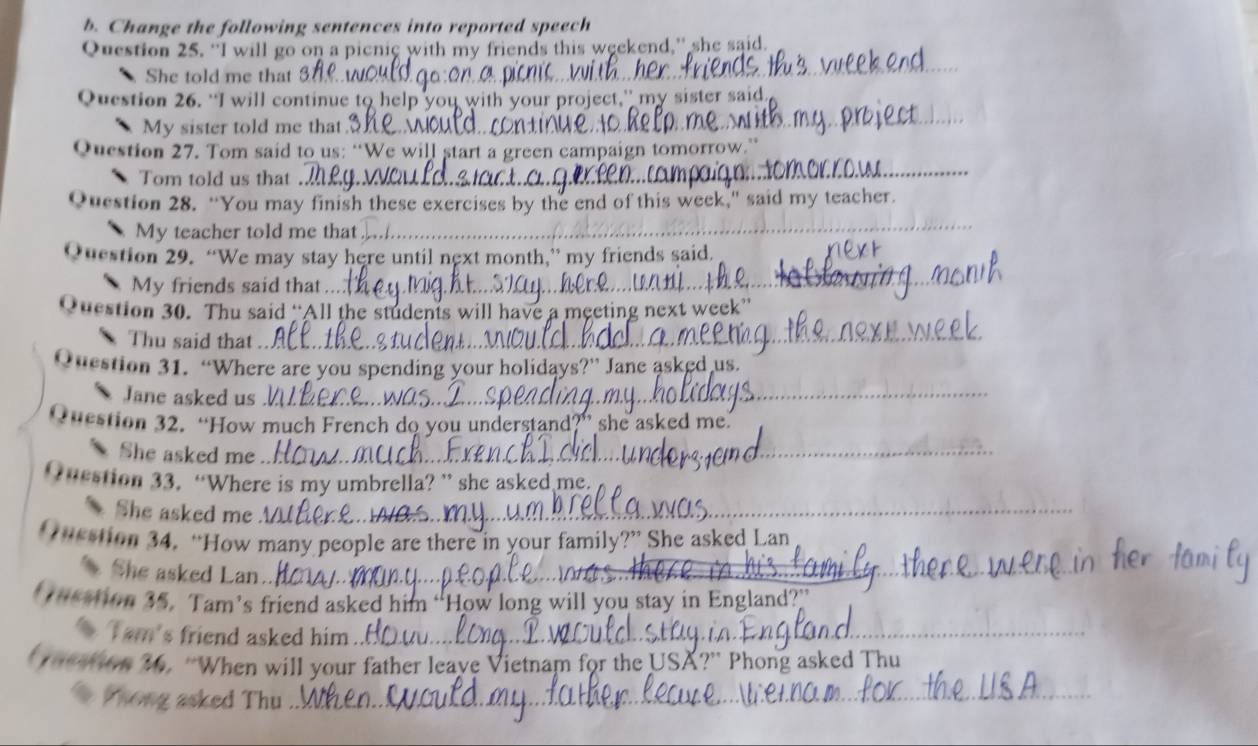 b. Change the following sentences into reported speech
Question 25. "I will go on a picnic with my friends this weekend," she said.
She told me that she would go on a picnic with her friends thus weekend
Question 26. "I will continue to help you with your project," my sister said.
My sister told me that she would continue to help me with my project
Question 27. Tom said to us: "We will start a green campaign tomorrow."
Tom told us that They would start a green campaign tomorrow
Question 28. "You may finish these exercises by the end of this week," said my teacher.
My teacher told me that I
Question 29. "We may stay here until next month," my friends said.
My friends said that they might stay here until the next month
Question 30. Thu said "All the students will have a meeting next week"
Thu said that All the student would had a meeting the next week
Question 31. "Where are you spending your holidays?" Jane asked us.
Jane asked us Where was I spending my holidays
Question 32. "How much French do you understand?" she asked me.
She asked me How much French I did understand
Question 33. "Where is my umbrella? " she asked me.
She asked me where was my umbrella was
Question 34. "How many people are there in your family?" She asked Lan
She asked Lan How many people was there in his family there were in her family
Question 35. Tam's friend asked him "How long will you stay in England?"
Tam's friend asked him How long I would stay in England
Question 36. "When will your father leave Vietnam for the USA?" Phong asked Thu
Phong asked Thu When would my father leave Vietnam for the USA